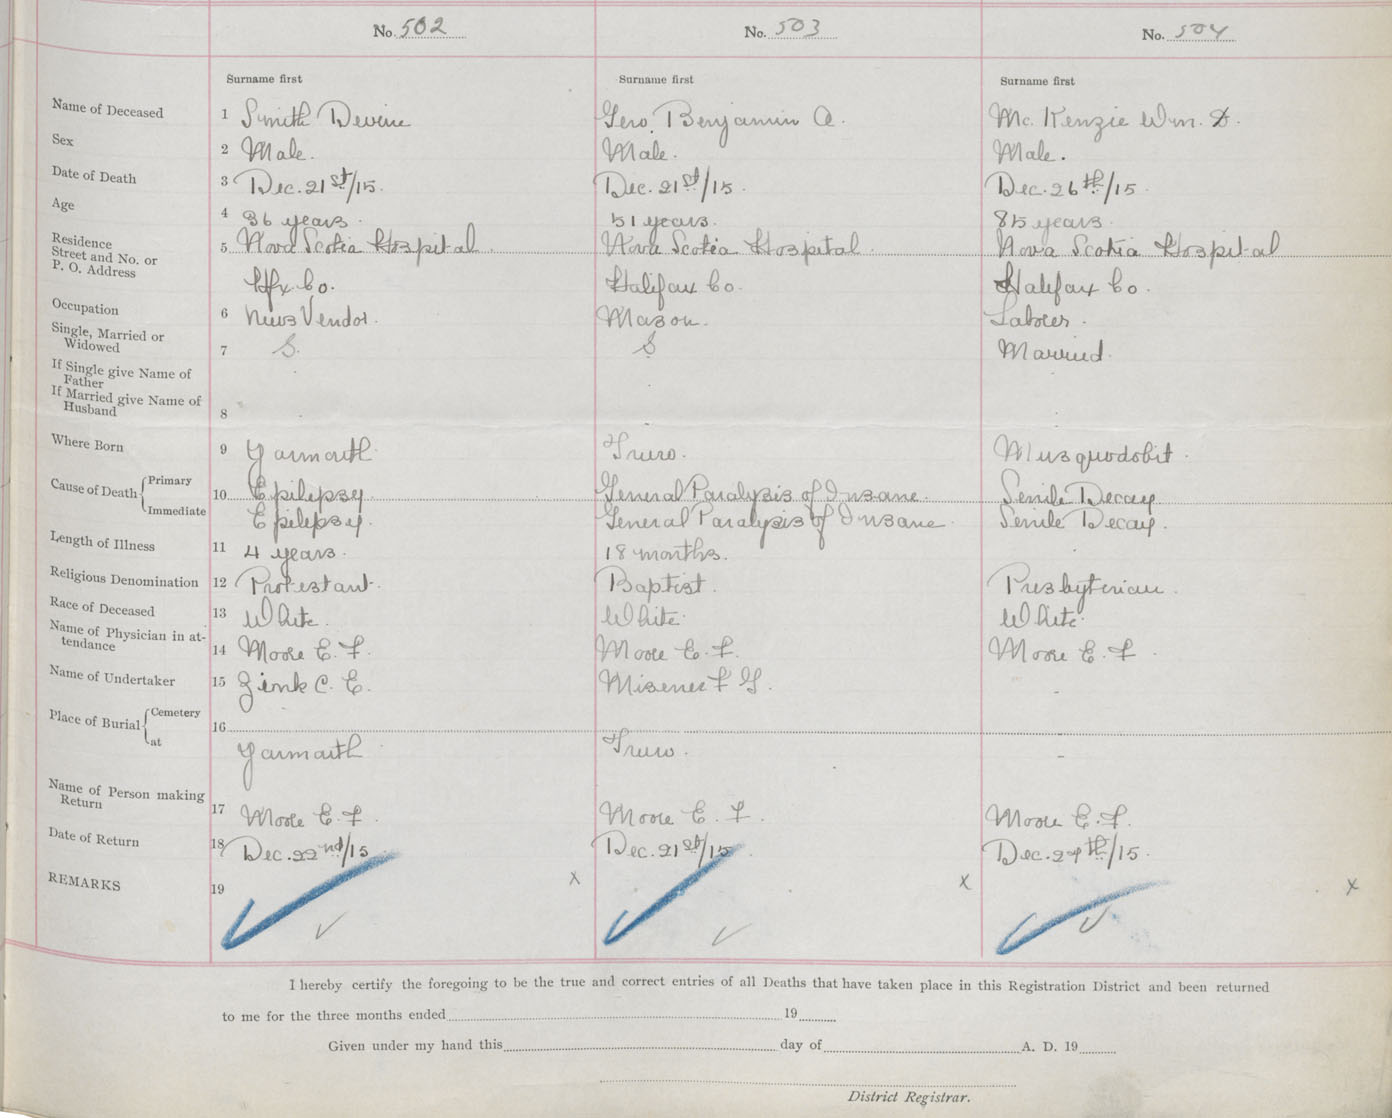 No. 502 No. 503 No. 504
Surname first Surname first Surname first
Name of Deceased 1 Smith Devine Gero, Benjamin A. McKenzie Wm. D.
Sex 2 Male. Male. Male.
Date of Death 3 Dec. 21st/15 Dec. 21st/15. Dec. 26th/15
Age 4 36 years. 51 years. 85 years.
Residence
Street and No. or 5 Nova Scotia Hospital Nova Scotia Hospital Nova Scotia Hospital
P. O. Address Hfx Co. Halifax Co. Halifax Co.
Occupation 6 News Vendor. Mason. Laborer.
Single, Married or
Widowed 7 S. S Married.
If Single give Name of
Father
If Married give Name of
Husband 8
Where Born 9 Yarmouth Truro. Musquodobit.
Cause of Death Primary 10 Epilepsy. General Paralysis of Insane. Senile Decay
Immediate Epilepsy. General Paralysis of Insane. Senile Decay.
Length of Illness 11 4 years. 18 months.
Religious Denomination 12 Protestant. Baptist. Presbyterian.
Race of Deceased 13 White. White. White.
Name of Physician in at-
tendance 14 Moore E. F. Moore E. F. Moore E. F.
Name of Undertaker 15 Zink C. E. Misener F G.
Place of Burial Cemetery 16
at Yarmouth Truro.
Name of Person making
Return 17 Moore E. F. Moore E. F. Moore E. F.
Date of Return 18 Dec. 22nd/15 Dec. 21st/15 Dec. 27th/15.
REMARKS 19 x x x
I hereby certify the foregoing to be the true and correct entries of all Deaths that have taken place in this Registration District and been returned
to me for the three months ended 19
Given under my hand this day of A. D. 19
District Registrar.